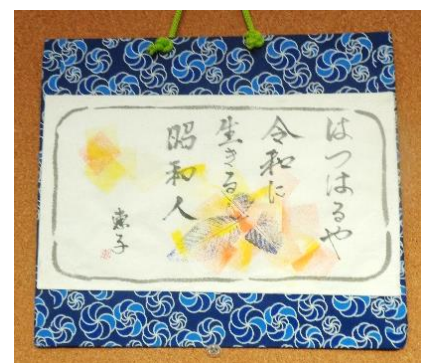 はつはるや
令和に
生きる
昭和人
恵子